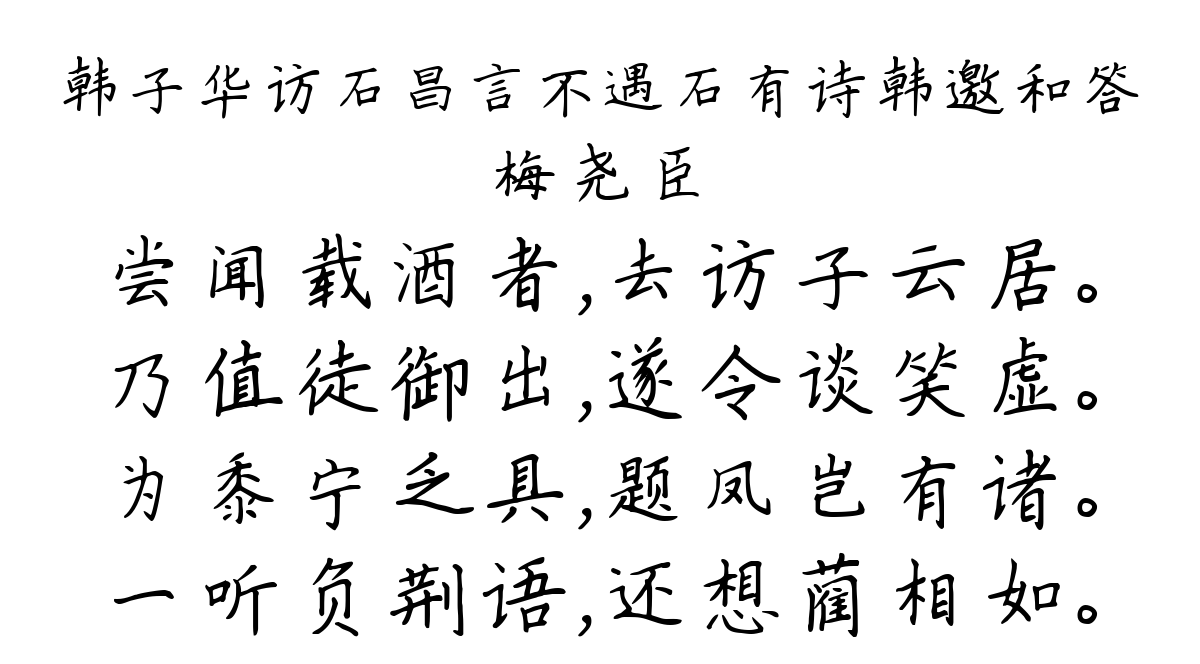 韩子华访石昌言不遇石有诗韩邀和答
梅尧臣
尝闻载酒者,去访子云居。
乃值徒御出,遂令谈笑虚。
为黍宁乏具,题凤岂有诸。
一听负荆语,还想蔺相如。